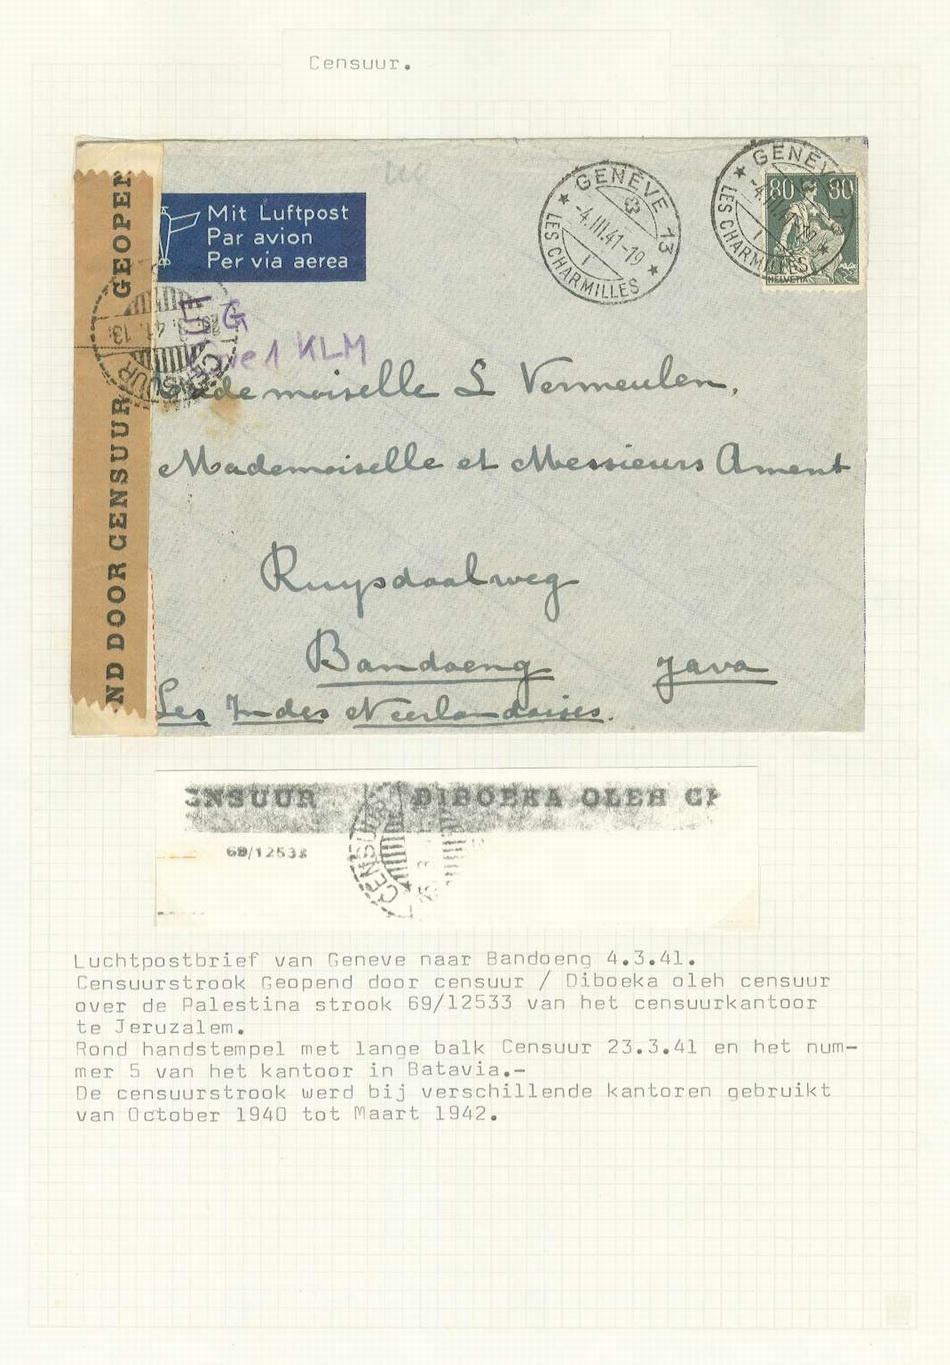 Censuur.
GENÈVE 13
-4.III.41-19
1
LES CHARMILLES
GENÈVE 13
LES CHARMILLES
80 80
HELVETIA
Mit Luftpost
Par avion
Per via aerea
GEOPEN
ND DOOR CENSUUR
CENSUUR
G
KLM
Mademoiselle S Vermeulen,
Mademoiselle et Messieurs Ament
Ruysdaalweg
Bandoeng Java
Les Indes Neerlandaises.
ENSUUR DIBOEKA OLEH CE
69/12533
CENSUUR
Luchtpostbrief van Geneve naar Bandoeng 4.3.41.
Censuurstrook Geopend door censuur / Diboeka oleh censuur
over de Palestina strook 69/12533 van het censuurkantoor
te Jeruzalem.
Rond handstempel met lange balk Censuur 23.3.41 en het num-
mer 5 van het kantoor in Batavia.-
De censuurstrook werd bij verschillende kantoren gebruikt
van October 1940 tot Maart 1942.